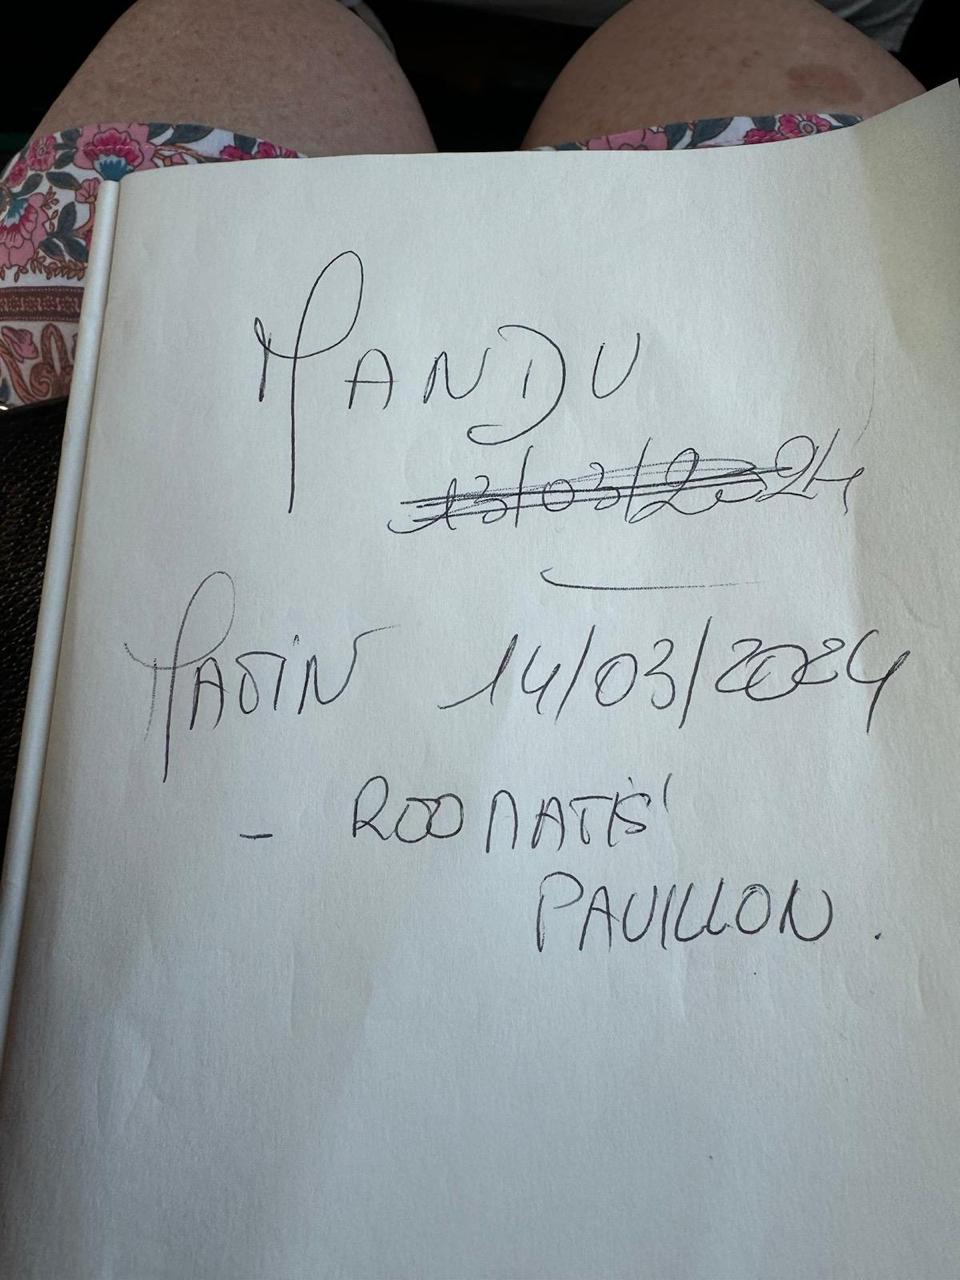 MANDU
13/03/2024
MATIN 14/03/2024
- ROOMATIS'
PAVILLON.